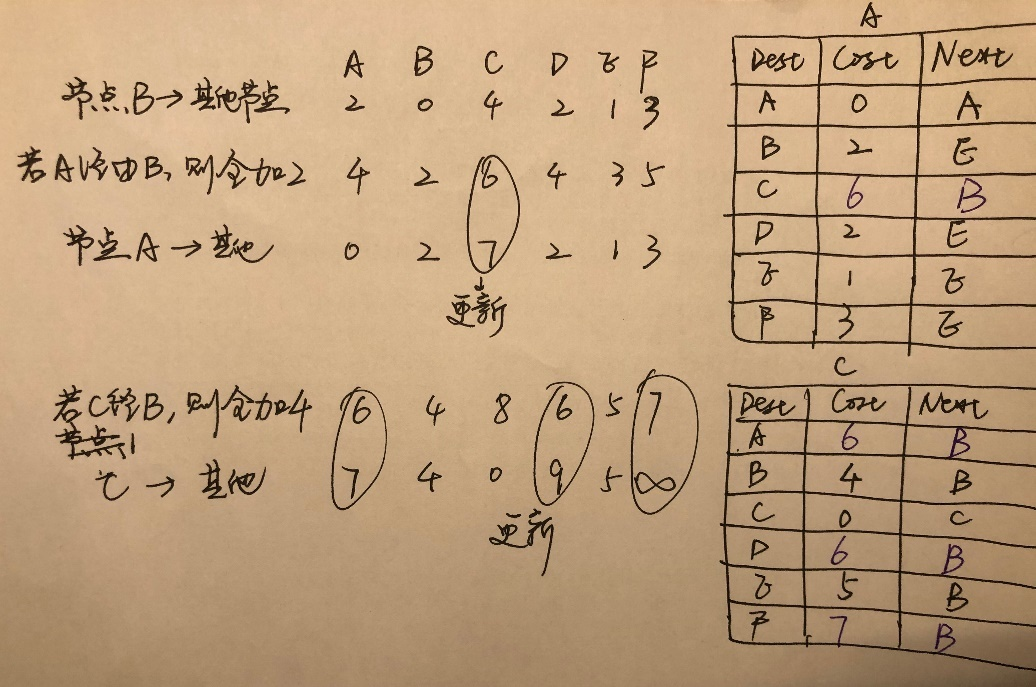 A B C D E F
节点B→其他节点 2 0 4 2 1 3
若A经由B, 则全加2 4 2 6 4 3 5
节点A→其他 0 2 7 2 1 3
更新
若C经B, 则全加4 6 4 8 6 5 7
节点1
C→其他 7 4 0 9 5 ∞
更新
A
Dest Cost Next
A 0 A
B 2 E
C 6 B
D 2 E
E 1 E
F 3 E
C
Dest Cost Next
A 6 B
B 4 B
C 0 C
D 6 B
E 5 B
F 7 B